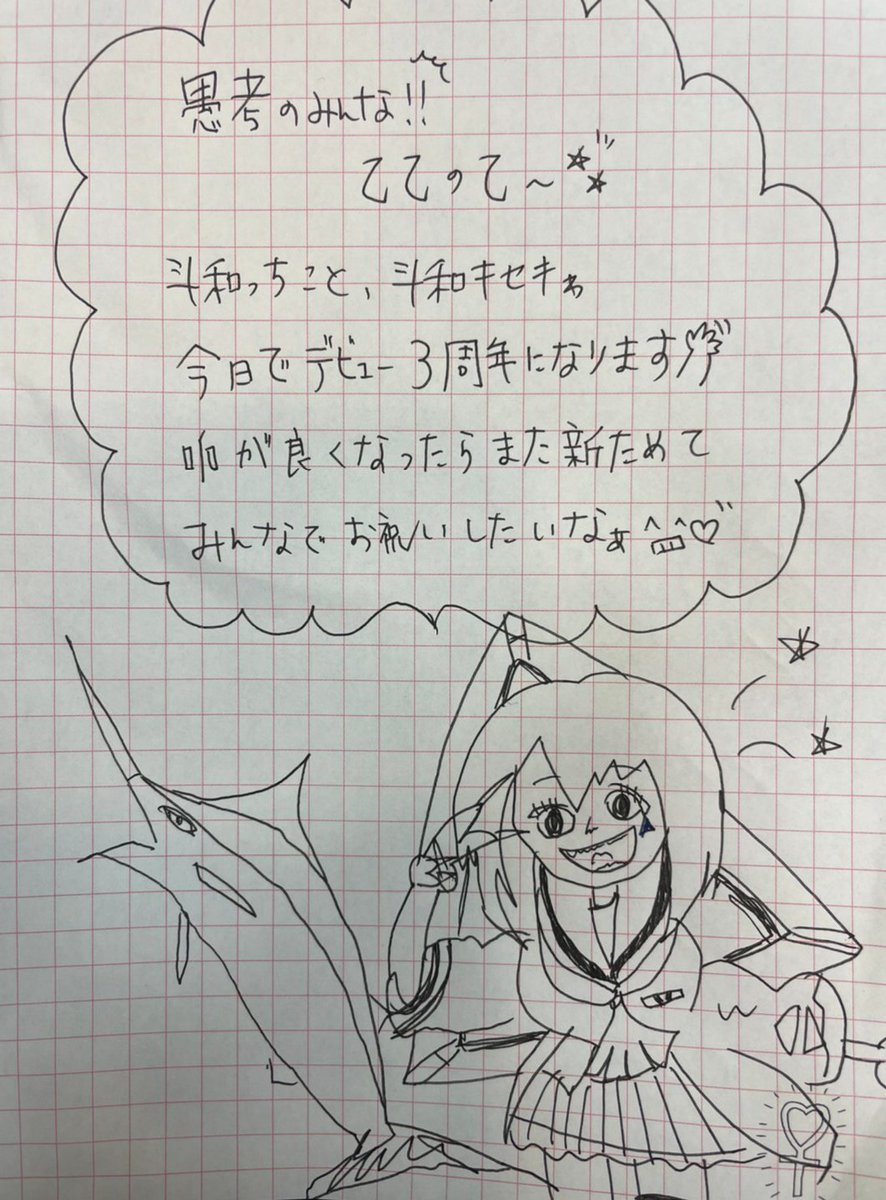 愚考のみんな!!
乙乙の乙〜☆☆
斗和っちこと、斗和キセキゎ
今日でデビュー3周年になります
が良くなったらまた新ためて
みんなでお祝いしたいなぁ^皿^♡